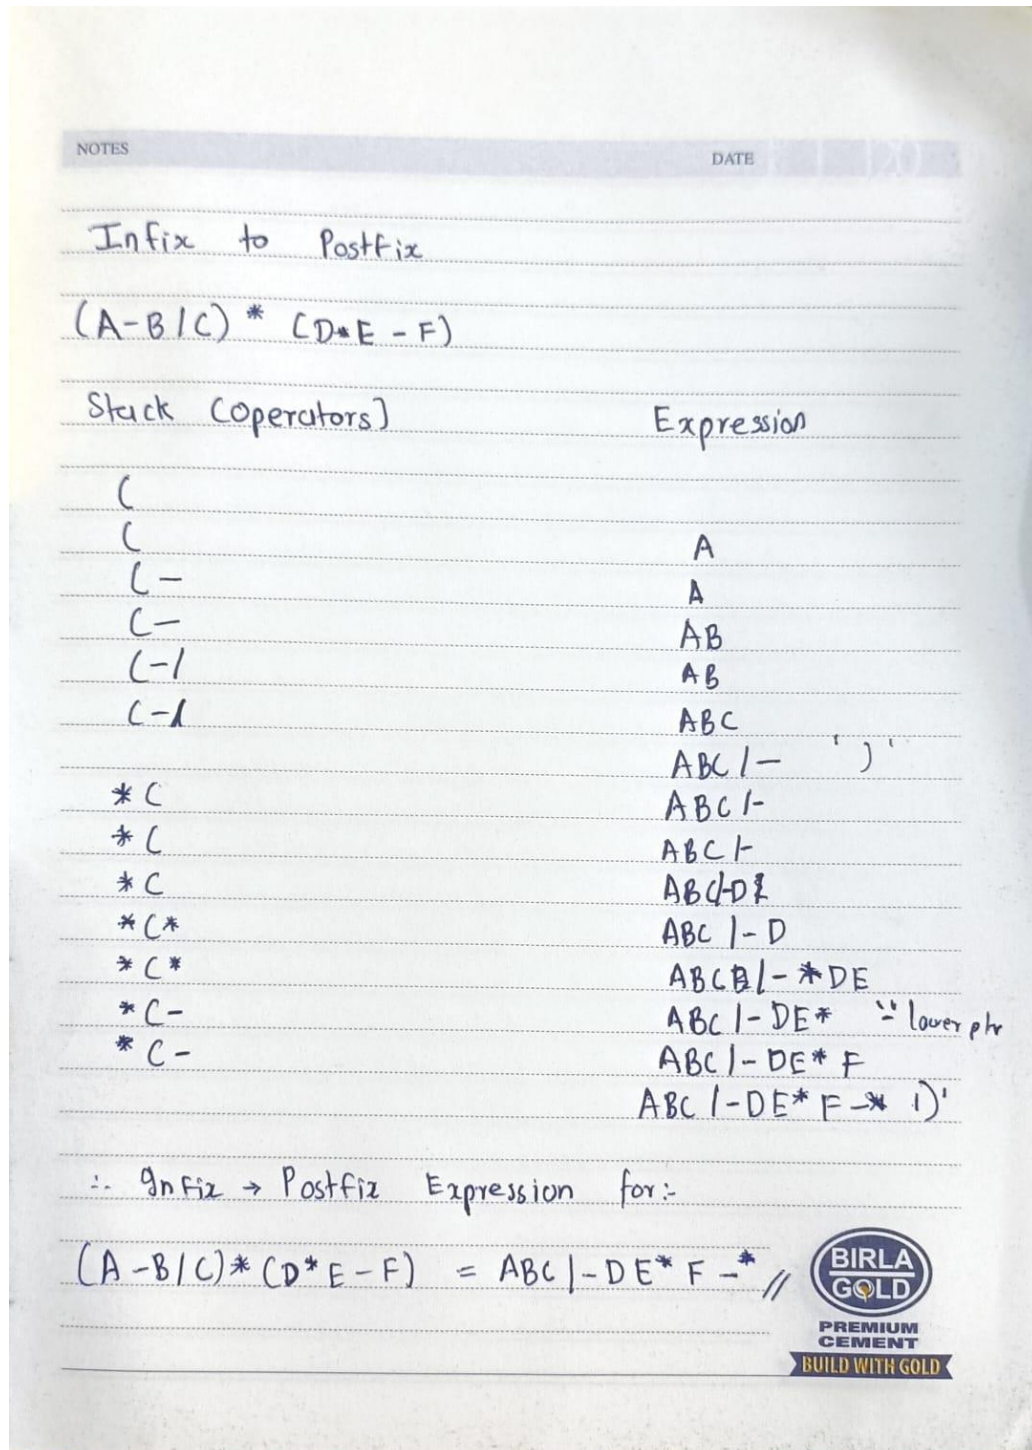 NOTES DATE
Infix to Postfix
(A-B/C) * (D*E - F)
Stack (operators) Expression
(
( A
(- A
(- AB
(-/ AB
(-/ ABC
ABC/- ')'
*( ABC/-
*( ABC/-
*( ABC/-D
*(* ABC/-D
*(* ABCB/-*DE
*(- ABC/-DE* '-' lower ptr
*(- ABC/-DE*F
ABC/-DE*F-* ')'
∴ Infix → Postfix Expression for:-
(A-B/C)*(D*E-F) = ABC/-DE*F-*//
BIRLA
GOLD
PREMIUM
CEMENT
BUILD WITH GOLD